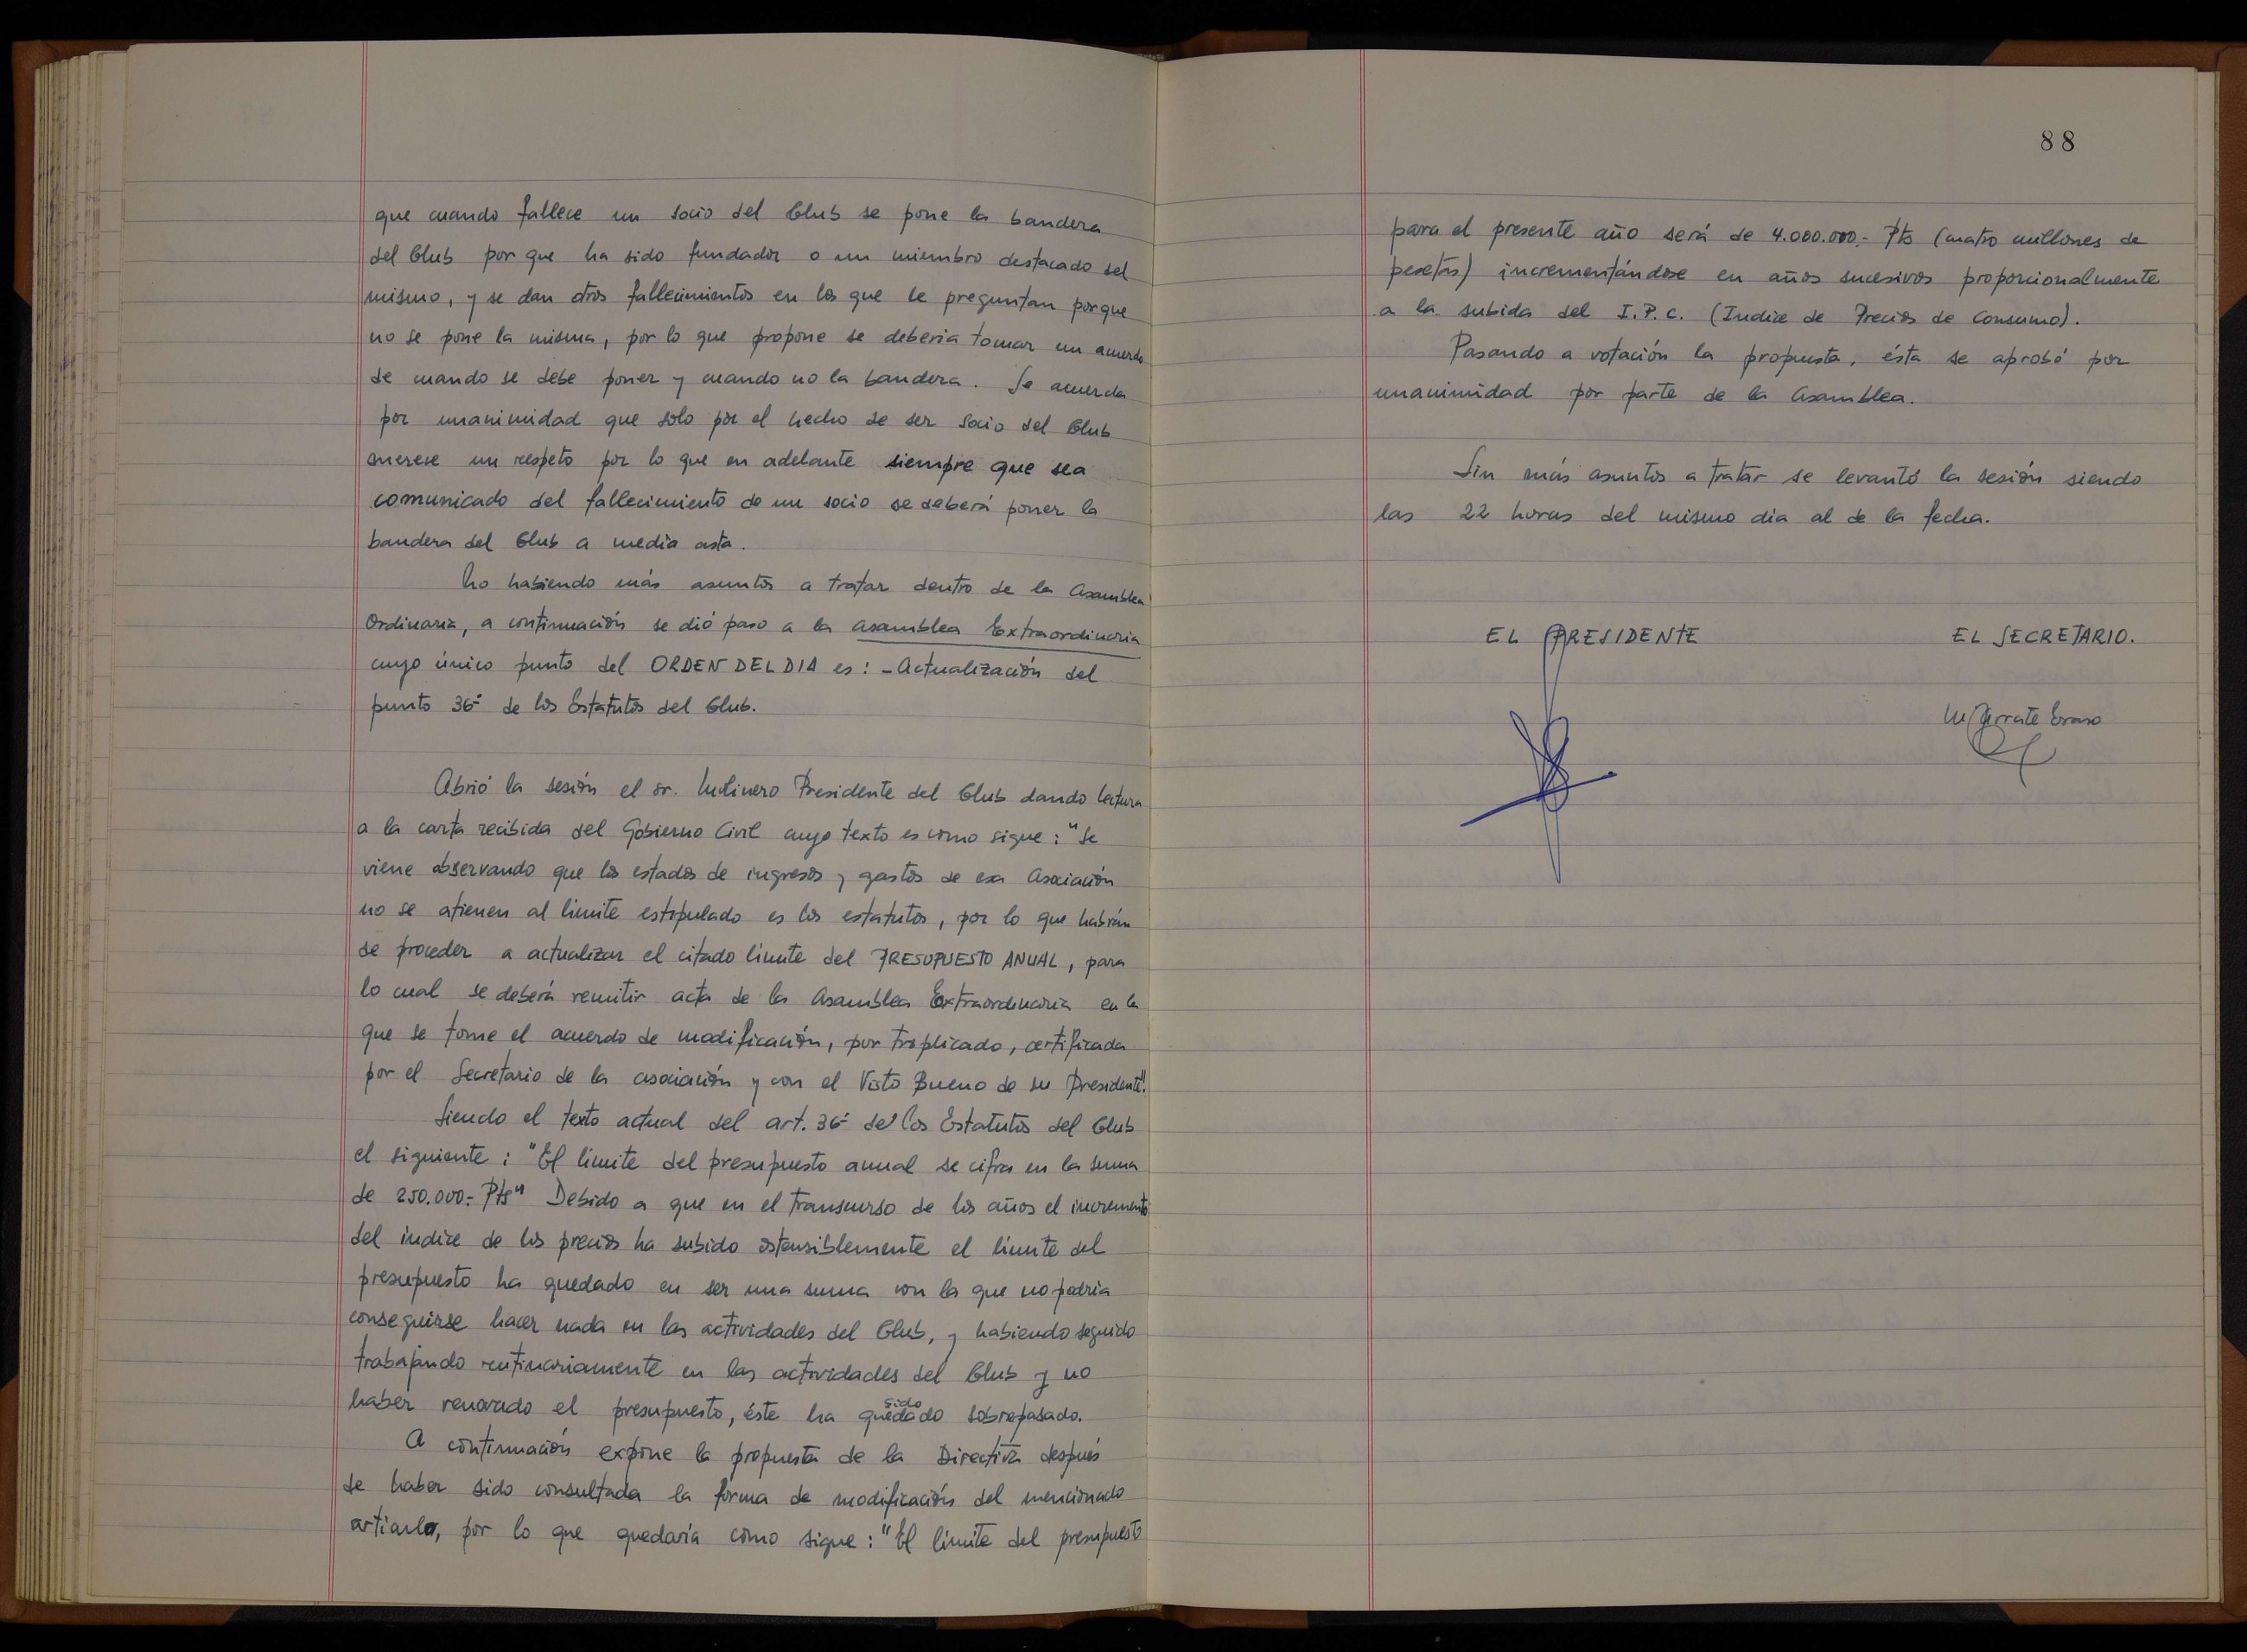 que cuando fallece un socio del Club se pone la bandera
del Club por que ha sido fundador o un miembro destacado del
mismo, y se dan otros fallecimientos en los que le preguntan porque
no se pone la misma, por lo que propone se deberia tomar un acuerdo
de cuando se debe poner y cuando no la bandera. Se acuerda
por unanimidad que solo por el hecho de ser socio del Club
merece un respeto por lo que en adelante siempre que sea
comunicado del fallecimiento de un socio se deberá poner la
bandera del Club a media asta.
No habiendo más asuntos a tratar dentro de la Asamblea
Ordinaria, a continuación se dió paso a la Asamblea Extraordinaria
cuyo único punto del ORDEN DEL DIA es: - Actualización del
punto 36º de los Estatutos del Club.
Abrió la sesión el sr. Molinero Presidente del Club dando lectura
a la carta recibida del Gobierno Civil cuyo texto es como sigue: "Se
viene observando que los estados de ingresos y gastos de esa Asociación
no se atienen al limite estipulado es los estatutos, por lo que habrán
de proceder a actualizar el citado límite del PRESUPUESTO ANUAL, para
lo cual se deberá remitir acta de la Asamblea Extraordinaria en la
que se tome el acuerdo de modificación, por triplicado, certificada
por el Secretario de la asociación y con el Visto Bueno de su Presidente".
Siendo el texto actual del art. 36º de los Estatutos del Club
el siguiente: "El límite del presupuesto anual se cifra en la suma
de 250.000.- Pts" Debido a que en el transcurso de los años el incremento
del indice de los precios ha subido ostensiblemente el límite del
presupuesto ha quedado en ser una suma con la que no podria
conseguirse hacer nada en las actividades del Club, y habiendo seguido
trabajando rutinariamente en las actividades del Club y no
haber renovado el presupuesto, éste ha quedado sido sobrepasado.
A continuación expone la propuesta de la Directiva después
de haber sido consultada la forma de modificación del mencionado
artículo, por lo que quedaría como sigue: "El límite del presupuesto
88
para el presente año será de 4.000.000.- Pts (cuatro millones de
pesetas) incrementándose en años sucesivos proporcionalmente
a la subida del I.P.C. (Indice de Precios de Consumo).
Pasando a votación la propuesta, ésta se aprobó por
unanimidad por parte de la Asamblea.
Sin más asuntos a tratar se levantó la sesión siendo
las 22 horas del mismo dia al de la fecha.
EL PRESIDENTE EL SECRETARIO.